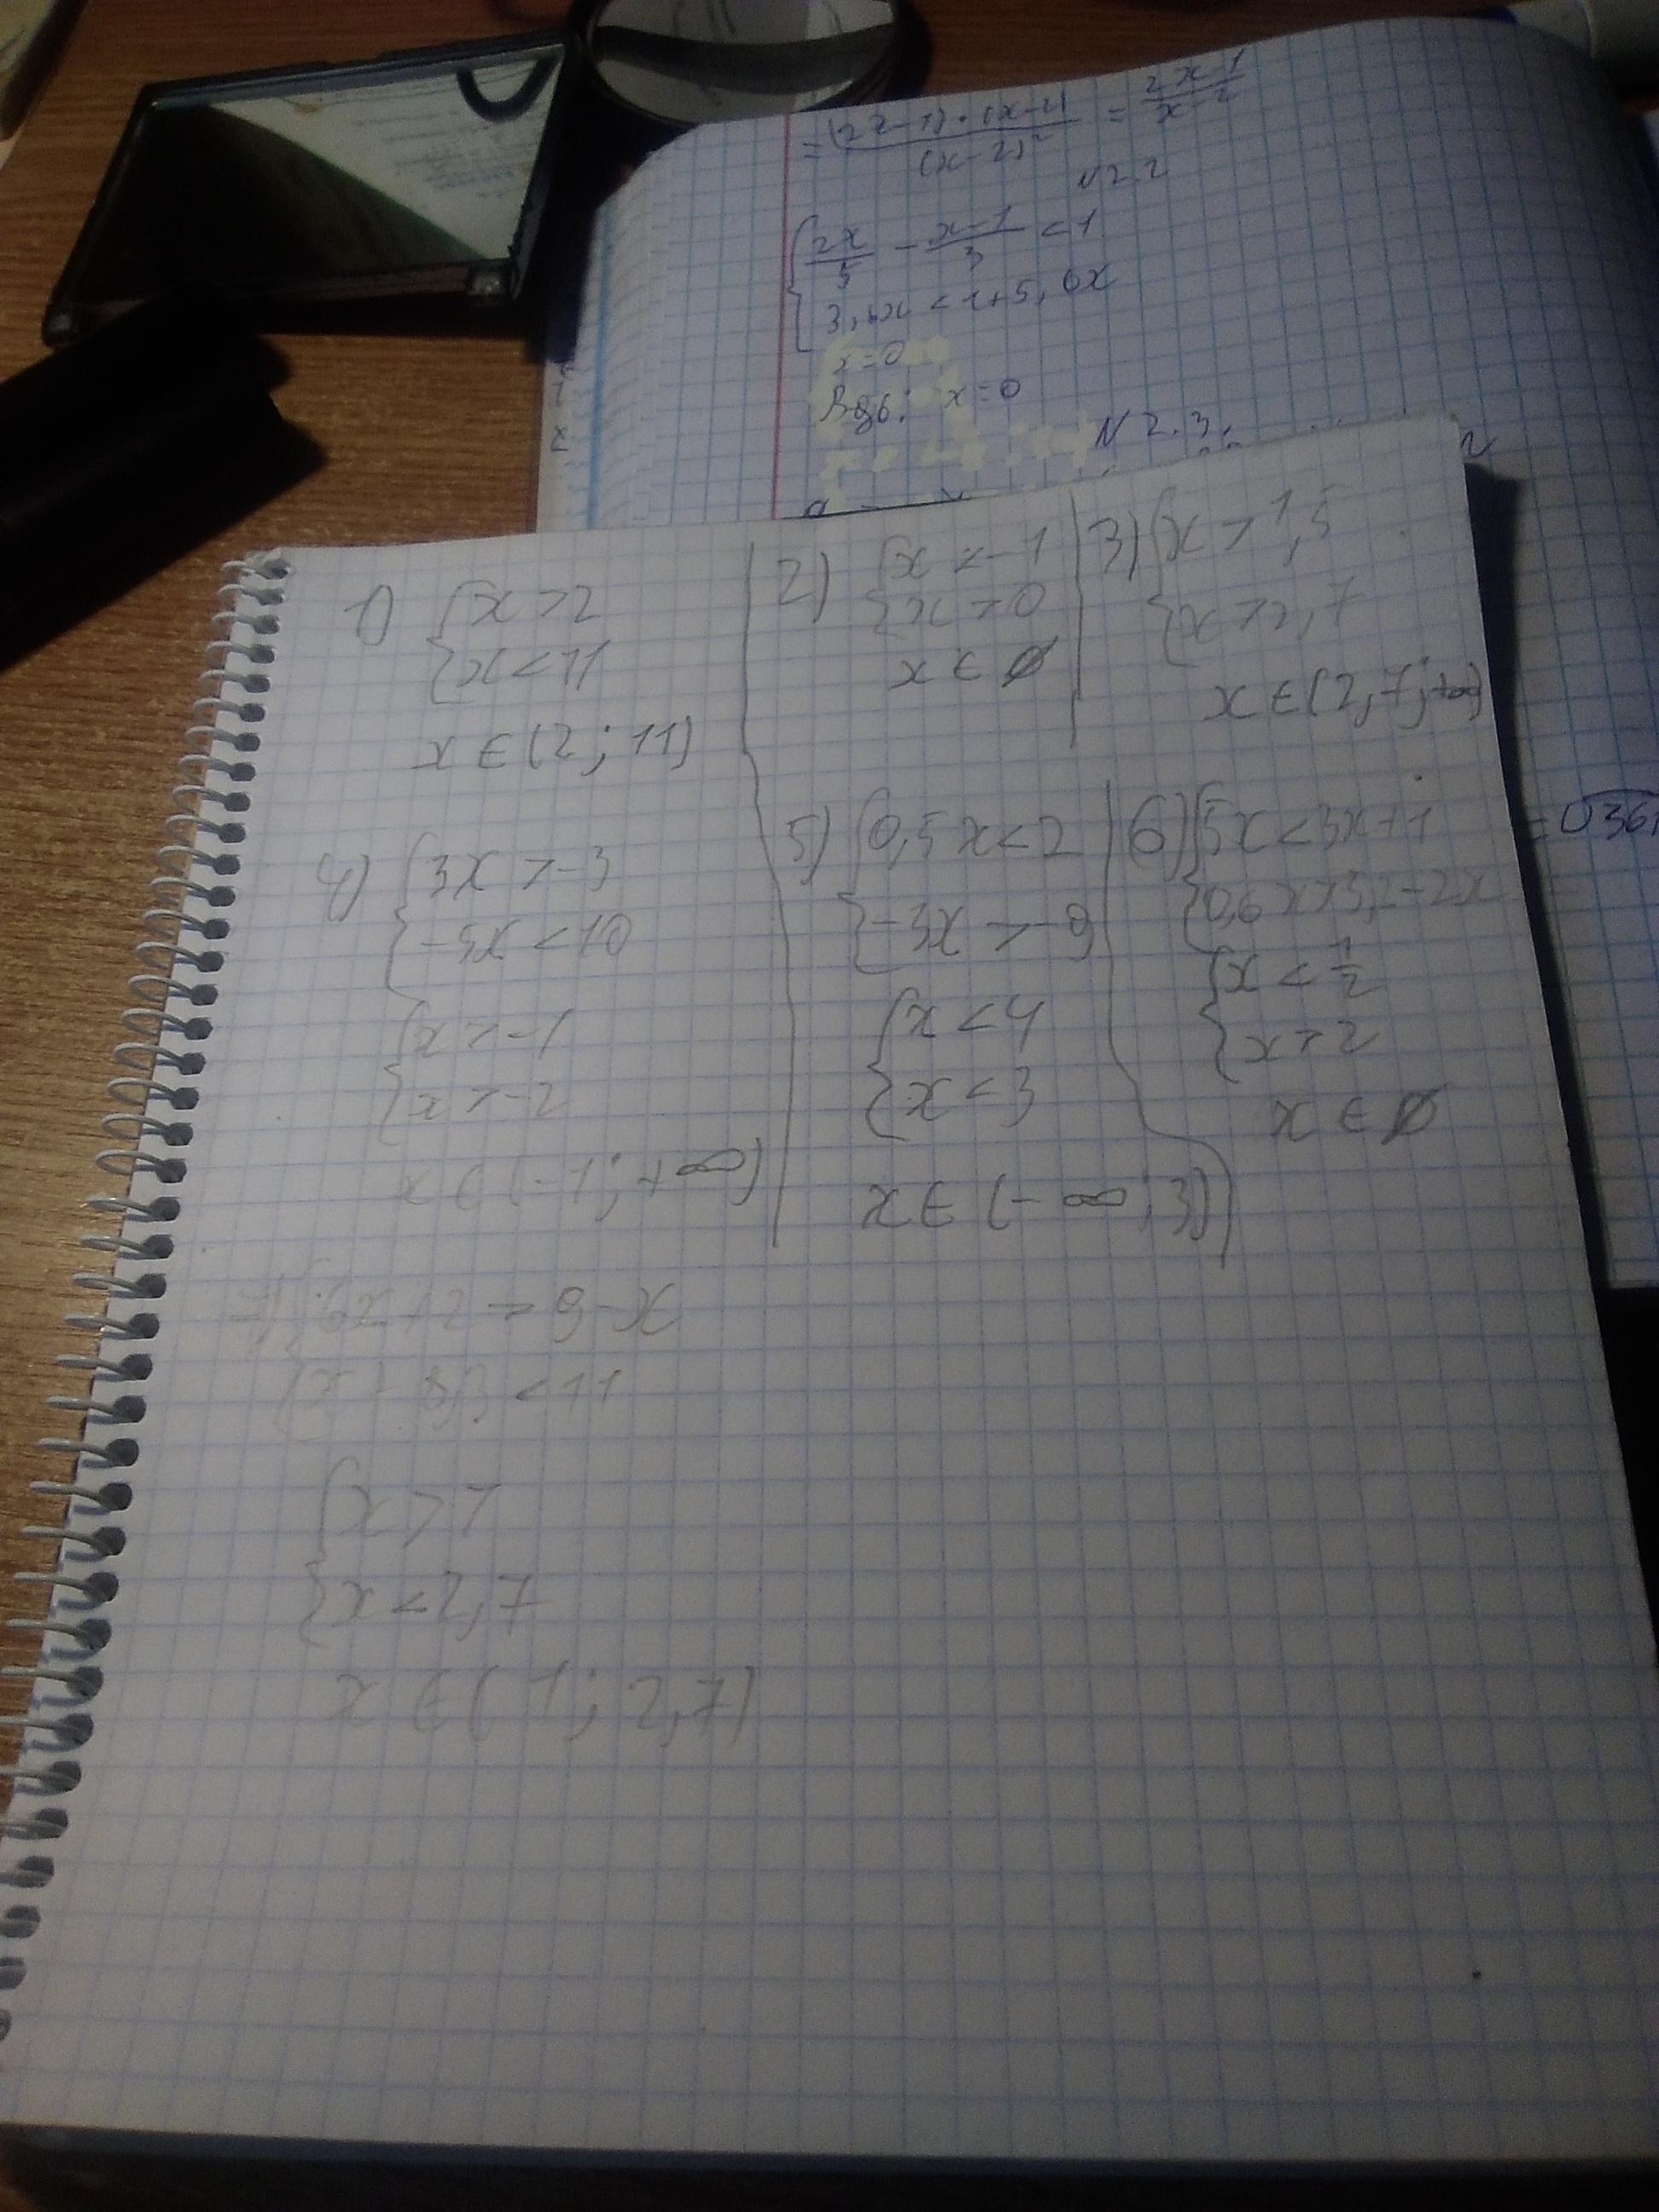 = (2x-1)·(x-2) / (x-2)² = 2x-1 / x-2
N 2.2
{ 2x/5 - x-1/3 < 1
x=0
x=0
N 2.3.
1) { x > 2
{ x < 11
x ∈ (2; 11)
2) { x < -1
{ x > 0
x ∈ ∅
3) { x > 1,5
{ x > 2,7
x ∈ (2,7; +∞)
4) { 3x > -3
{ -5x < 10
{ x > -1
{ x > -2
x ∈ (-1; +∞)
5) { 0,5x < 2
{ -3x > -9
{ x < 4
{ x < 3
x ∈ (-∞; 3)
6) { 5x < 3x+1
{ 0,6x > 5,2-2x
{ x < 1/2
{ x > 2
x ∈ ∅
7) { 6x+2 > 9-x
< 11
{ x > 1
{ x < 2,7
x ∈ (1; 2,7)
= √361